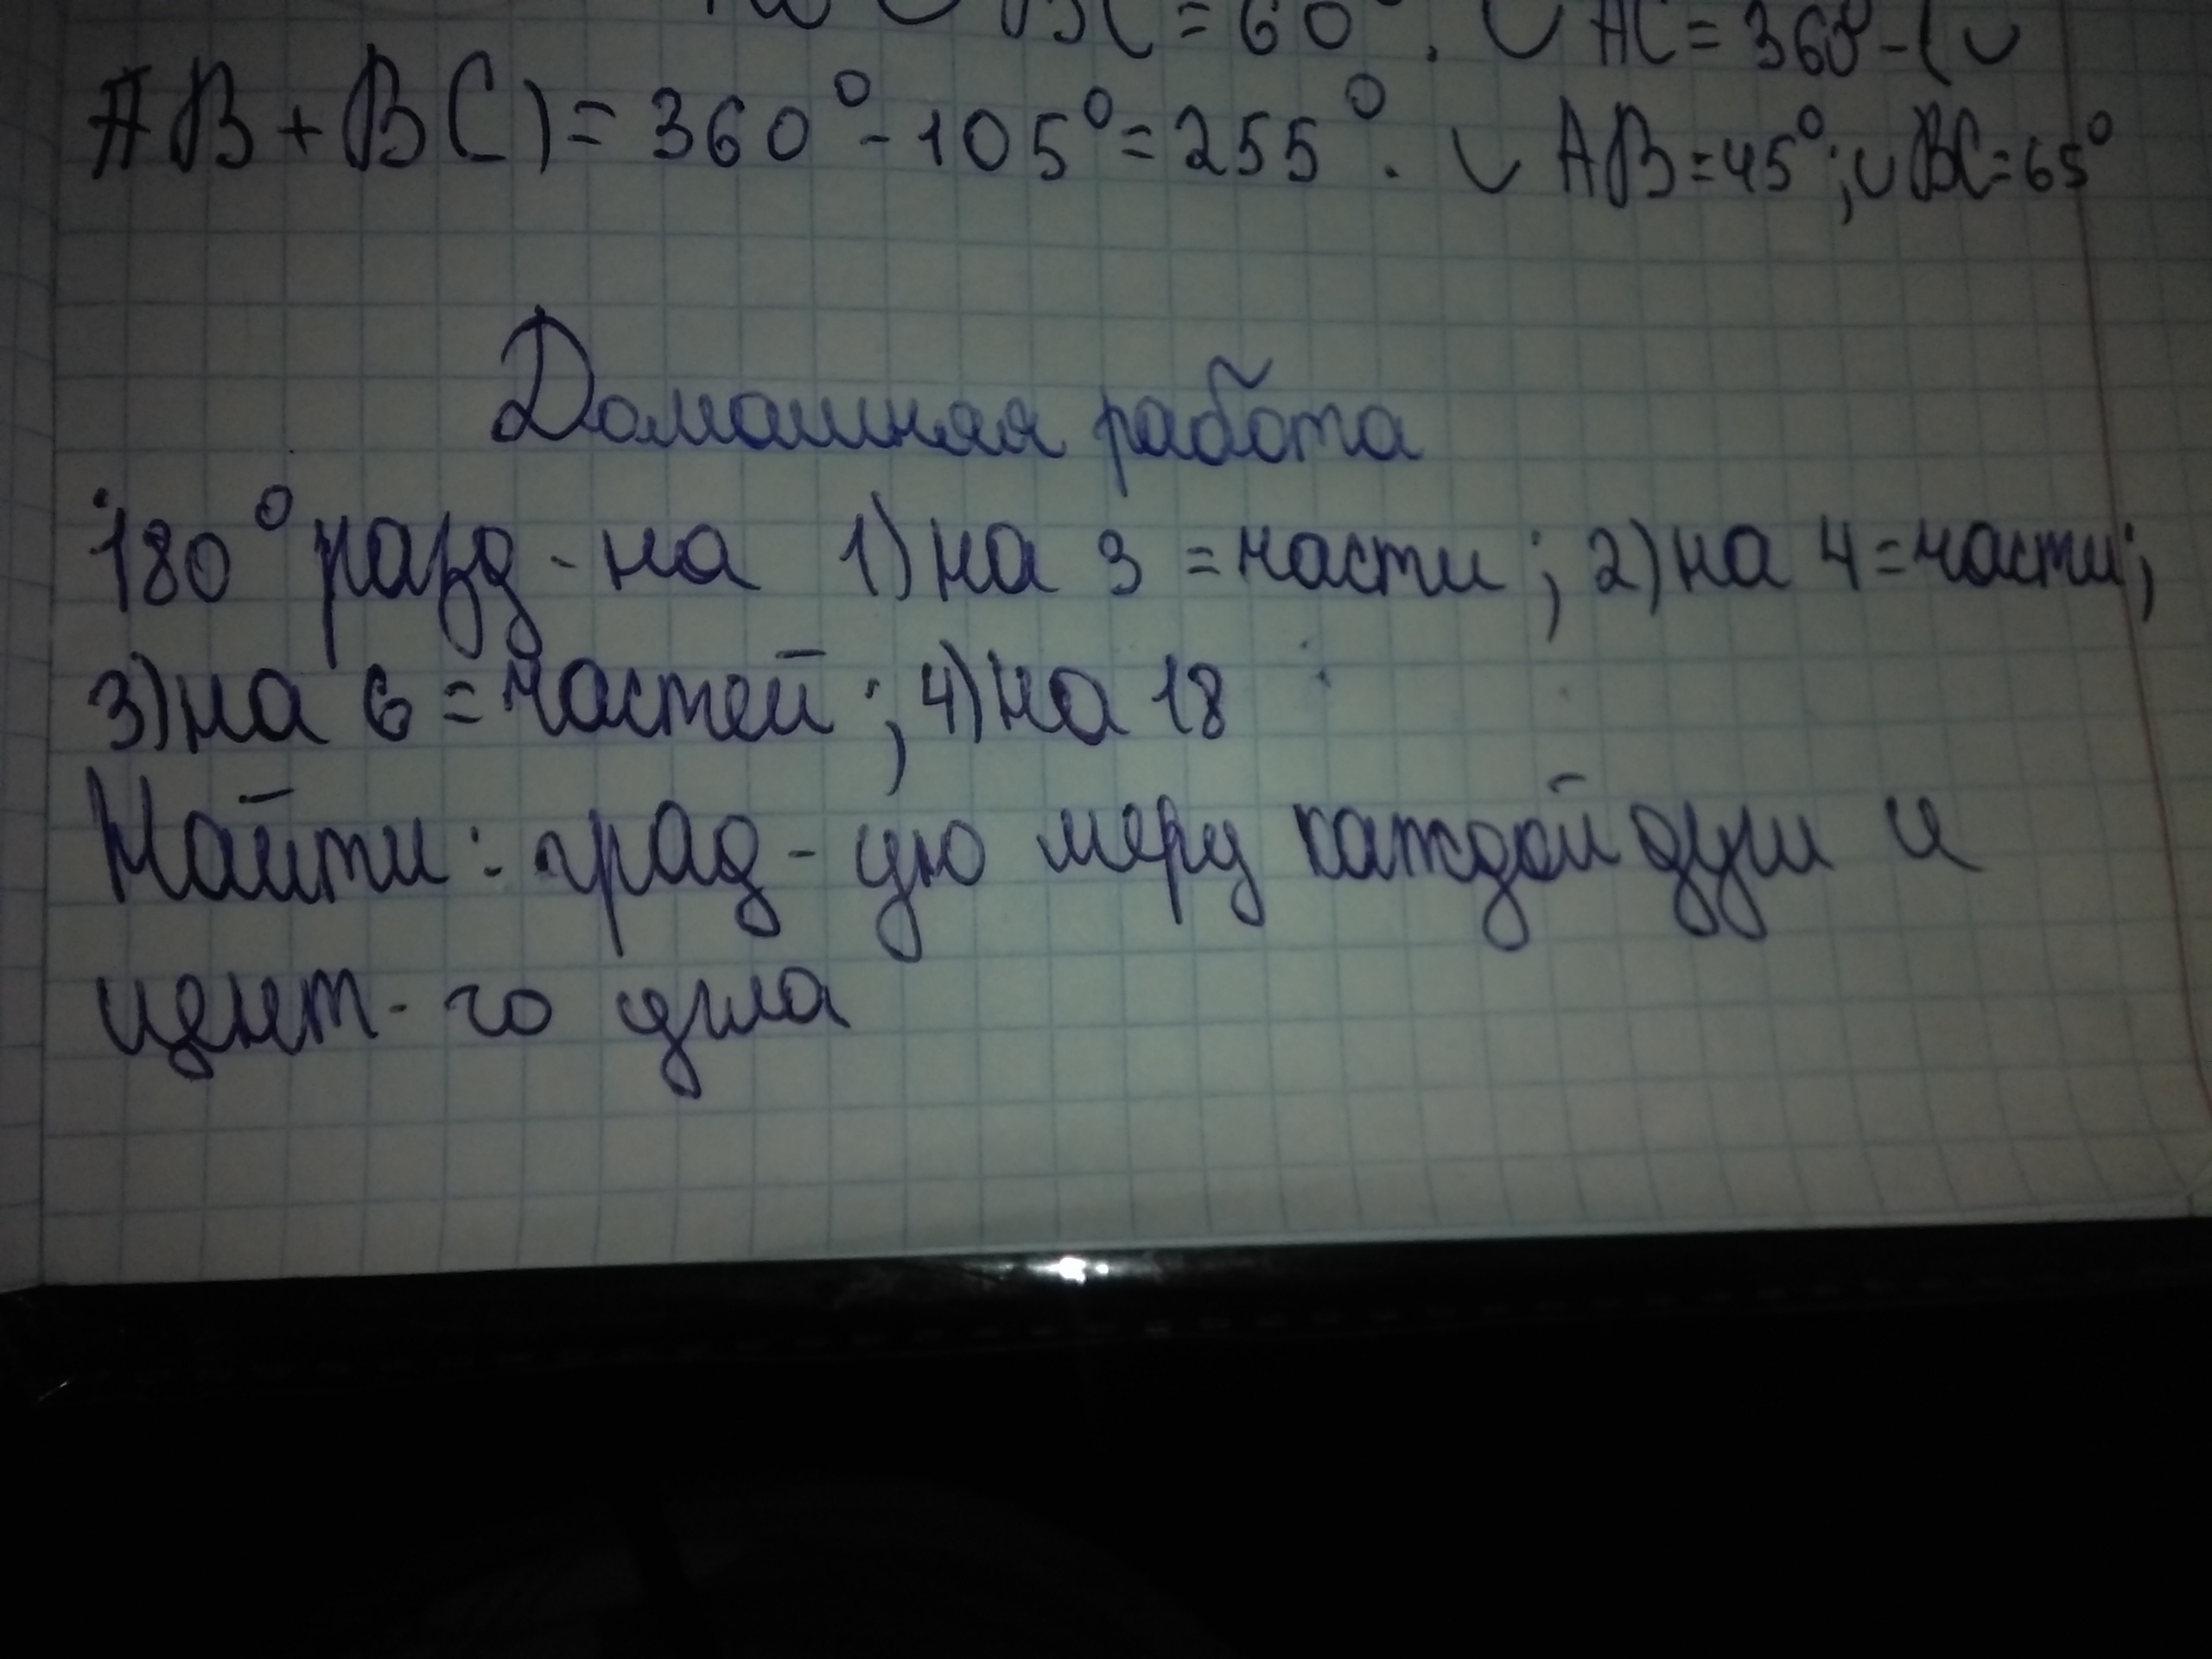 BC = 60°. ∪ AC = 360° - (∪
AB + BC) = 360° - 105° = 255°. ∪ AB = 45°; ∪ BC = 65°
Домашняя работа
180° разд - на 1) на 3 = части; 2) на 4 = части;
3) на 6 = частей; 4) на 18
Найти: град - ую меру каждой дуги и
цент - го угла